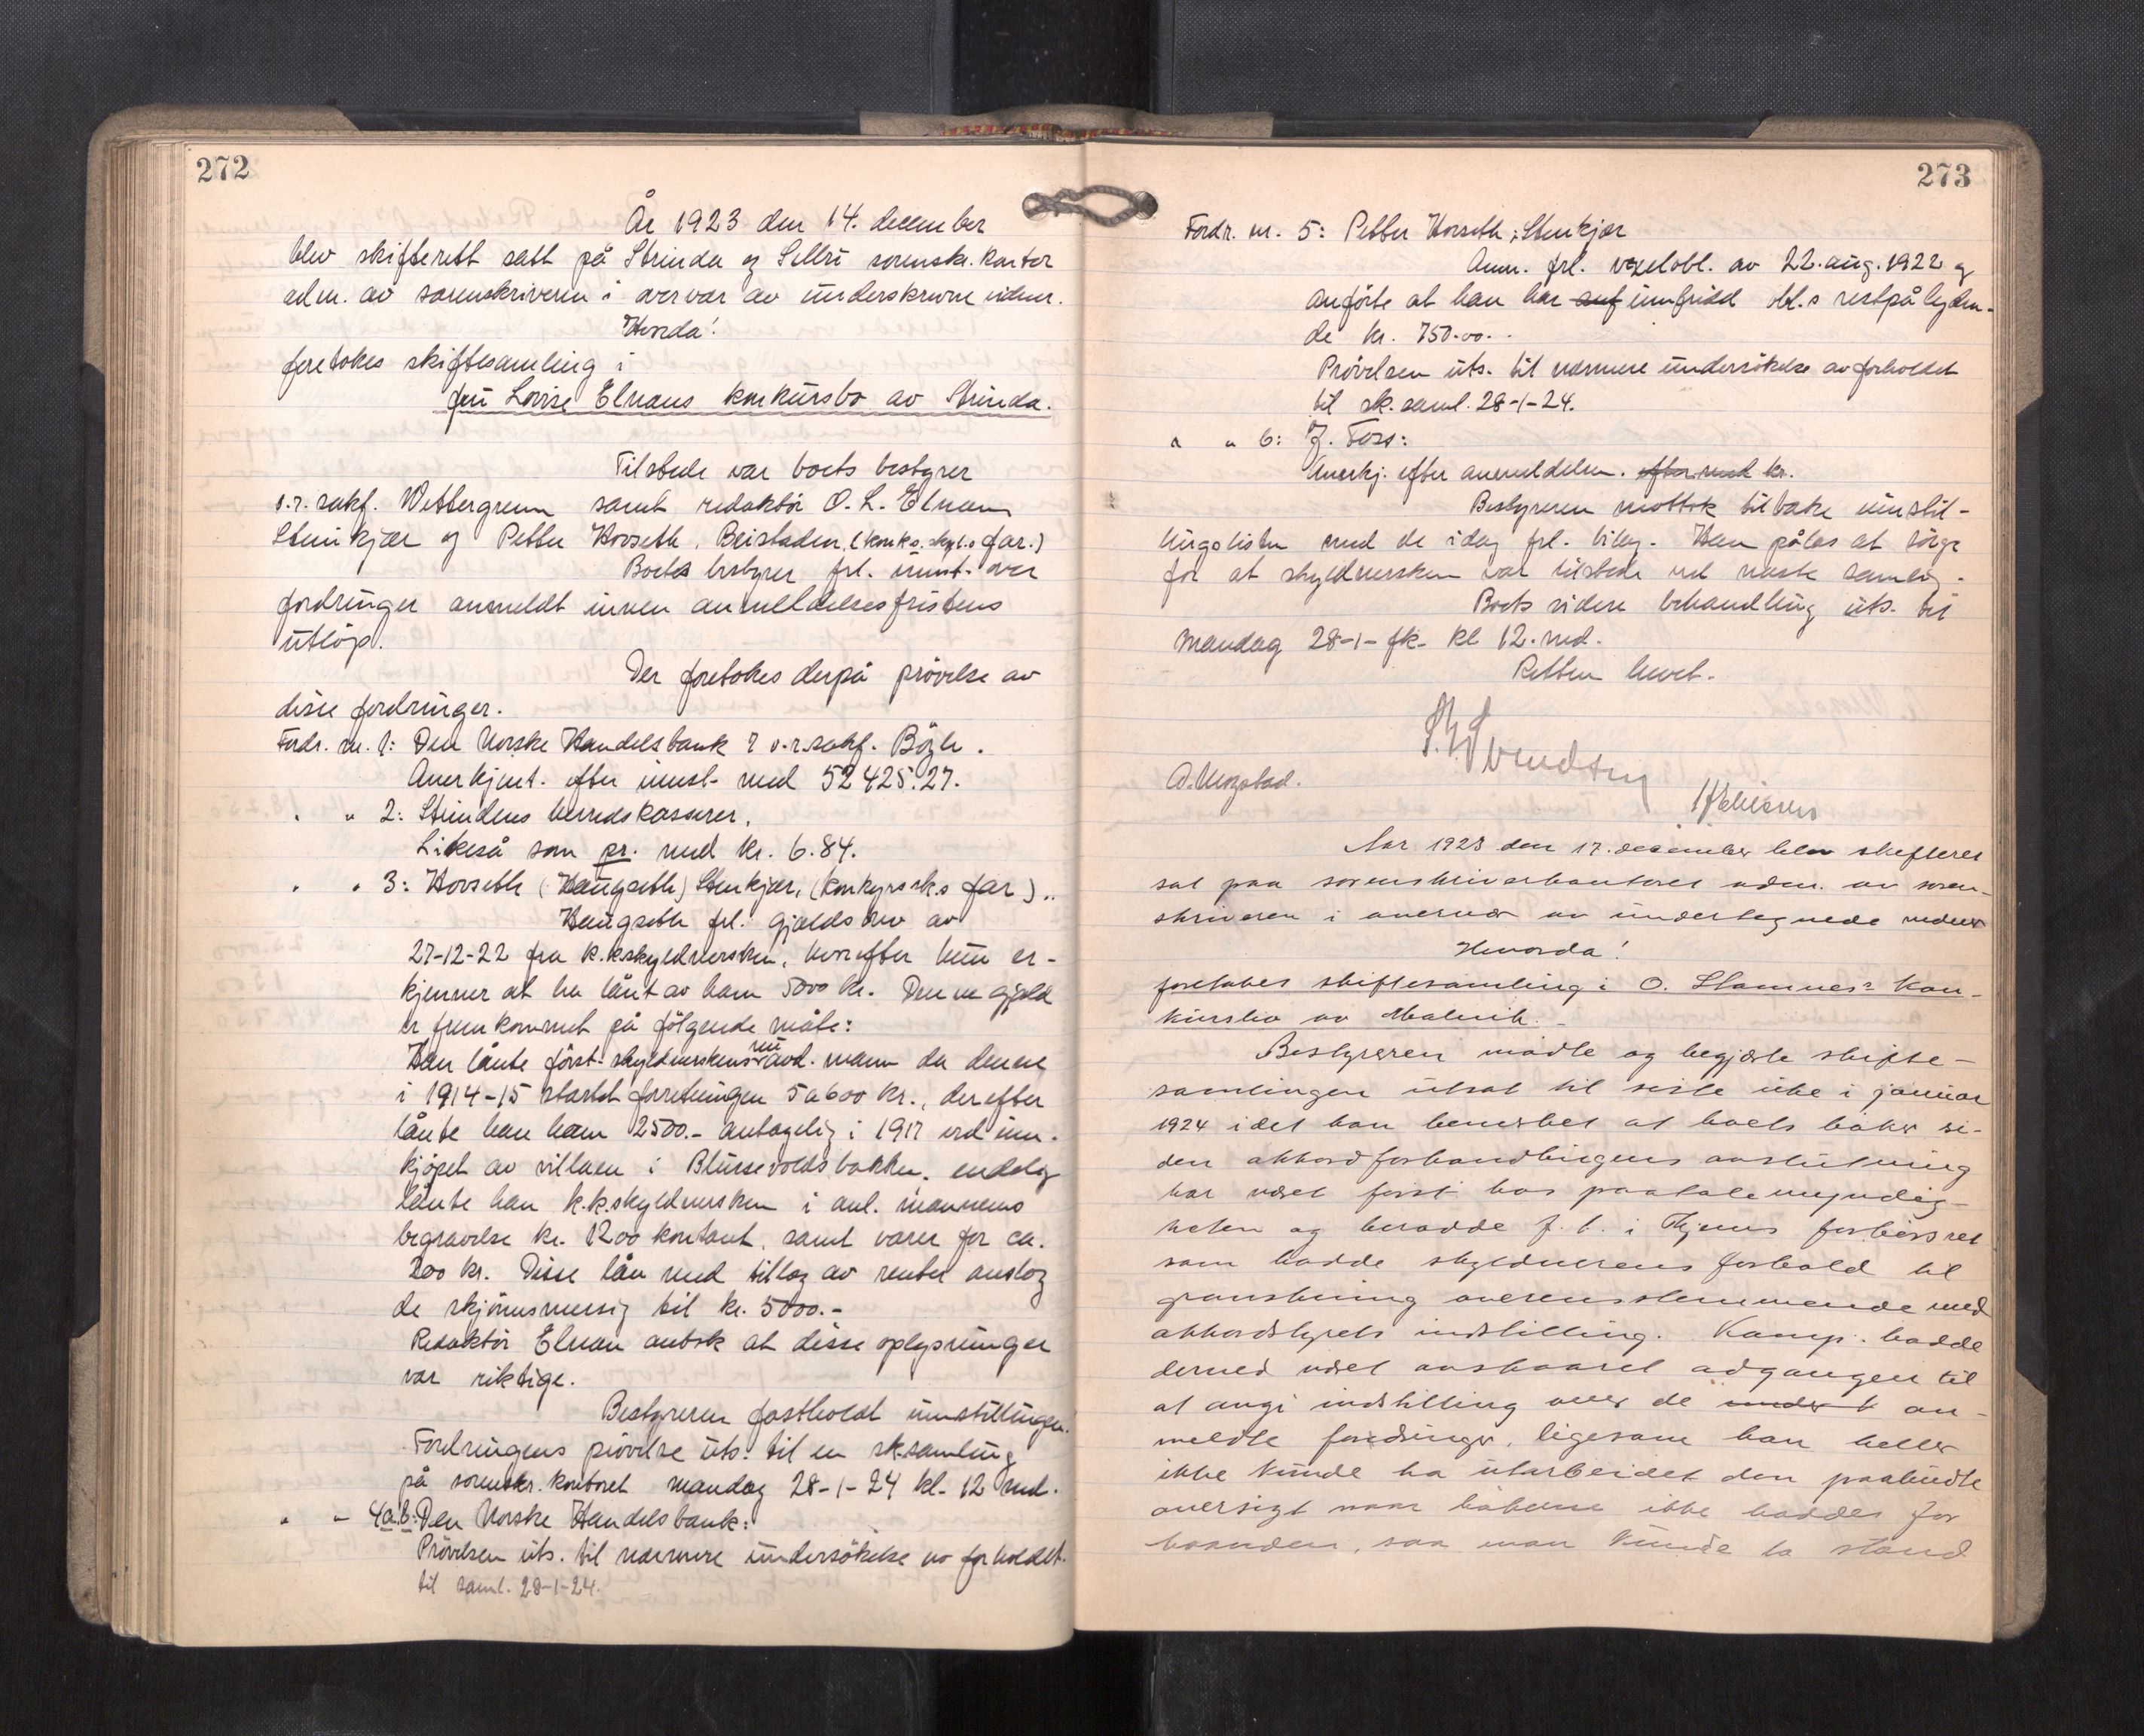 272
År 1923 den 14. december
blev skifterett satt på Strinda og Selbu sorenskr. kontor
adm. av sorenskriveren i overvær av underskrevne vidner.
Hvorda!
foretokes skiftesamling i
fru Lovise Elnans konkursbo av Strinda.
Tilstede var boets bestyrer
o.r.sakf. Wettergreen samt redaktör O. L. Elnan
Steinkjær og Petter Hovseth, Beistaden, (konks. skyl.s far.)
Boets bestyrer frl. innst. over
fordringer anmeldt innen anmeldelsesfristens
utlöp.
Der foretokes derpå prövelse av
disse fordringer.
Fordr. nr. 1: Den Norske Handelsbank v o.r.sakf.
Anerkjent. efter innst. med 52425.27.
" " 2: Strindens herredskasserer.
Likeså som pr. med kr. 6.84.
" " 3: Hovseth (Haugseth) Stenkjær, (konkurssk.s far)..
Haugseth frl. gjeldsbrev av
27-12-22 fra k.k.skyldnersken, hvorefter hun er-
kjenner at ha lånt av ham 5000 kr. Denne gjeld
er fremkommet på fölgende måte:
Han lånte först skyldnerskens nu avd. mann da denne
i 1914-15 startet forretningen 5 a 600 kr., derefter
lånte han ham 2500.- antagelig i 1917 ved inn-
kjöpet av villaen i Blussevoldsbakken, endelig
lånte han k.k.skyldnersken i anl. mannens
begravelse kr. 1200 kontant, samt varer for ca.
200 kr. Disse lån med tillæg av renter anslog
de skjönnsmessig til kr. 5000.-
Redaktör Elnan antok at disse oplysninger
var riktige.
Bestyreren fastholdt innstillingen.
Fordringens prövelse uts. til en sk.samling
på sorenskr. kontoret mandag 28-1-24 kl. 12 md.
" " 4a.b: Den Norske Handelsbank:
Prövelsen uts. til nærmere undersökelse av forholdet
til saml. 28-1-24.
273
Fordr. nr. 5: Petter Hovseth, Stenkjær
Anm. frl. vexelobl. av 22. aug. 1922 og
anförte at han har innfridd obl.s restpålyden-
de kr. 750.00.
Prövelsen uts. til nærmere undersökelse av forholdet
til sk.saml. 28-1-24.
" " 6: J. Foss:
Anerkj. efter anmeldelsen. efter med kr.
Bestyreren mottok tilbake innstil-
lingslisten med de idag frl. bilag. Han pålas at sörge
for at skyldnersken var tilstede ved næste samling.
Boets videre behandling uts. til
mandag 28-1- fk. kl 12. md.
Retten hevet.
Aar 1923 den 17. december blev skifteret
sat paa sorenskriverkontoret adm. av soren-
skriveren i overvær av undertegnede vidner
Hvorda!
foretokes skiftesamling i O. Stamnes' kon-
kursbo av Malvik.
Bestyreren mödte og begjærte skifte-
samlingen utsat til siste uke i januar
1924 idet han bemerket at boets böker si-
den akkordforhandlingens avslutning
har vært först hos paatalemyndig-
heten og beroдde f. t. i Hjems forhörsret
som hadde skyldnerens forhold til
granskning overensstemmende med
akkordstyrets indstilling. Komp. hadde
derved vært avskaaret adgangen til
at avgi indstilling over de an-
meldte fordringer, ligesom han heller
ikke kunde ha utarbeidet den paabudte
oversigt naar bökerne ikke haddes for
haanden, saa man kunde ta stand